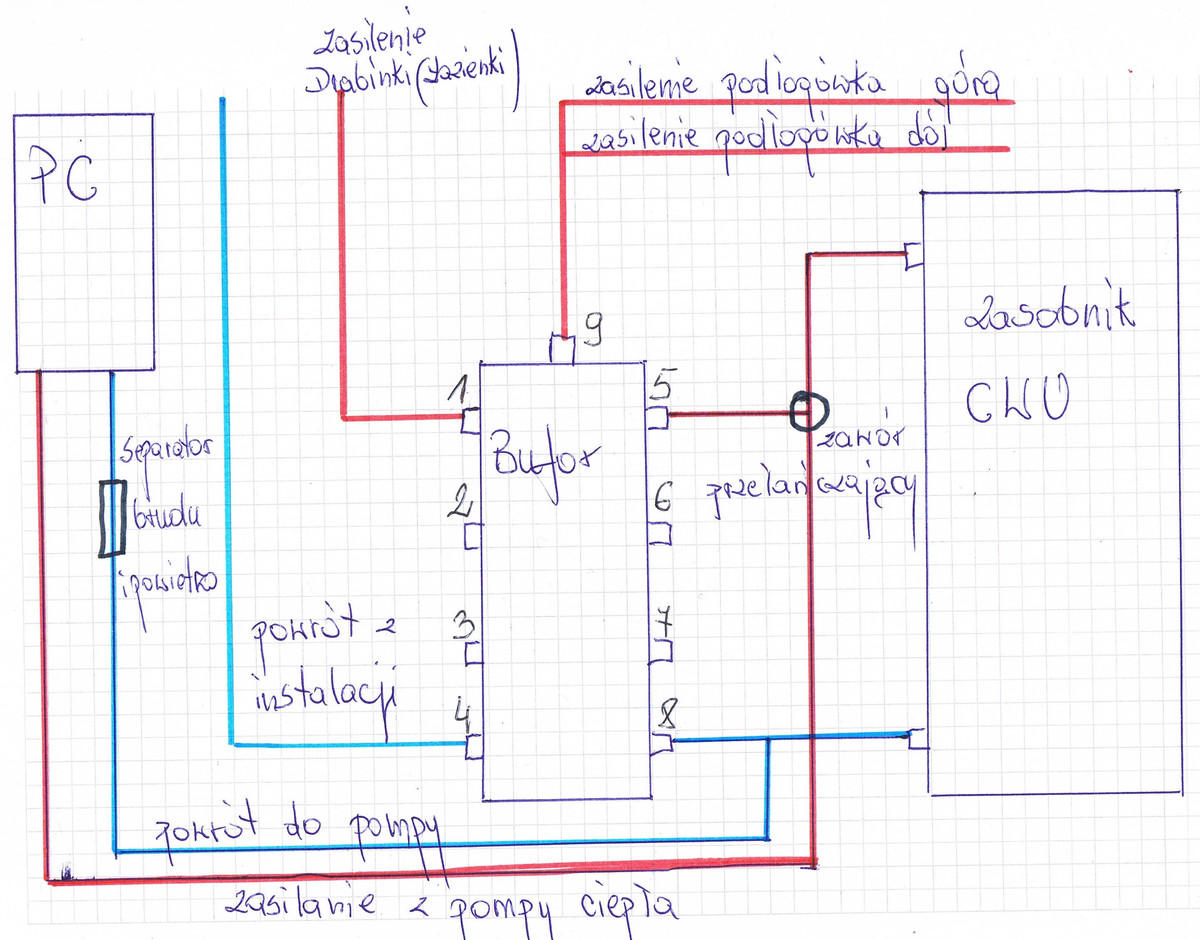 Zasilenie
Drabinki (łazienki)
zasilenie podłogówka góra
zasilenie podłogówka dół
PC
Zasobnik
CWU
9
1
5
Bufor
zawór
przełańczający
separator
brudu
i powietrza
2
6
3
7
powrót z
instalacji
4
8
powrót do pompy
zasilanie z pompy ciepła